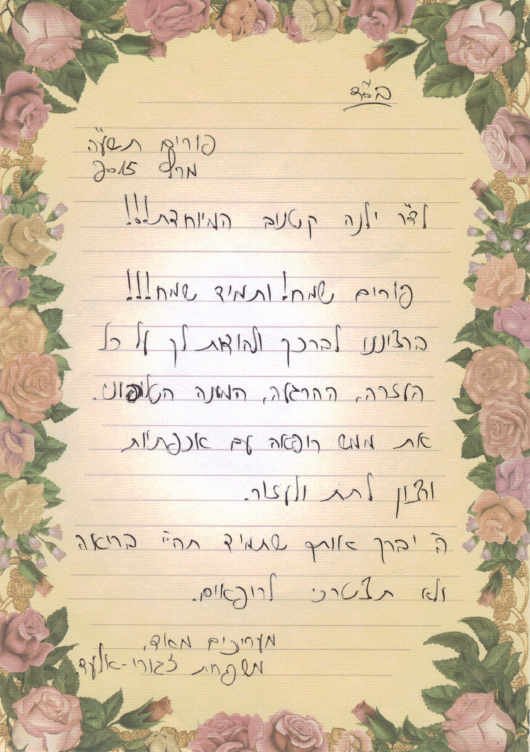 בס"ד
פורים תשע"ה
מרץ 2015
לד"ר ילנה קטנוב המיוחדת!!!
פורים שמח! ותמיד שמח!!!
ברצוננו לברכך ולהודות לך על כל
העזרה, ההרגלה, המענה הטלפוני.
את ממש רופאה עם אכפתיות
ורצון לתת ולעזור.
ה' יברך אותך שתמיד תהיי בריאה
ולא תצטרכי לרופאים.
מעריכים מאוד,
משפחת צבורי-אלעד